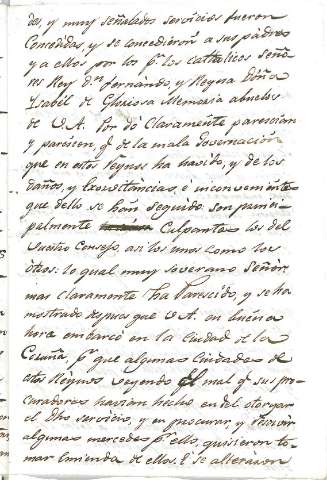 das, y muy señalados servicios fueron
Concedidas, y se concedieron a sus padres
y a ellos por los p.r los catholicos Seño
res Rey d.n fernándo, y Reyna Doña
Ysabél de Gloriosa Memoria abuelos
de V.A. Por dó Claramente parescian
y parescen, q.e de la mala Governación
que en estos Reynos ha havido, y de los
daños, y Exorvitáncias, é inconveniéntes
que dello se hán Seguido son princi-
palmente Culpantes los del
Vuestro Consejo, asi los unos como los
ótros: lo qual muy Soverano Señór,
mas claramente ha Parescido, y se ha
mostrado despues que V.A. en buéna
hora embarcó en la Ciudad de la
Coruña, p.r que algunas Ciudades de
estos Reynos veyendo El mal q.e sus pro-
curadores havian hecho en el otorgar
el dho servicio, y en procurar, y resevir
algunas mercedes p.r ello, quisieron to-
mar Emienda de ellos. E se alteraron